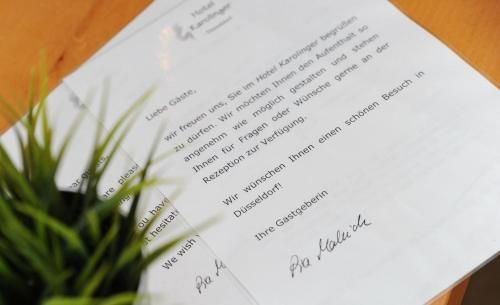 Hotel
Karolinger
Düsseldorf
Liebe Gäste,
wir freuen uns, Sie im Hotel Karolinger begrüßen
zu dürfen. Wir möchten Ihnen den Aufenthalt so
angenehm wie möglich gestalten und stehen
Ihnen für Fragen oder Wünsche gerne an der
Rezeption zur Verfügung.
Wir wünschen Ihnen einen schönen Besuch in
Düsseldorf!
Ihre Gastgeberin
are pleas
you have
t hesitat
We wish